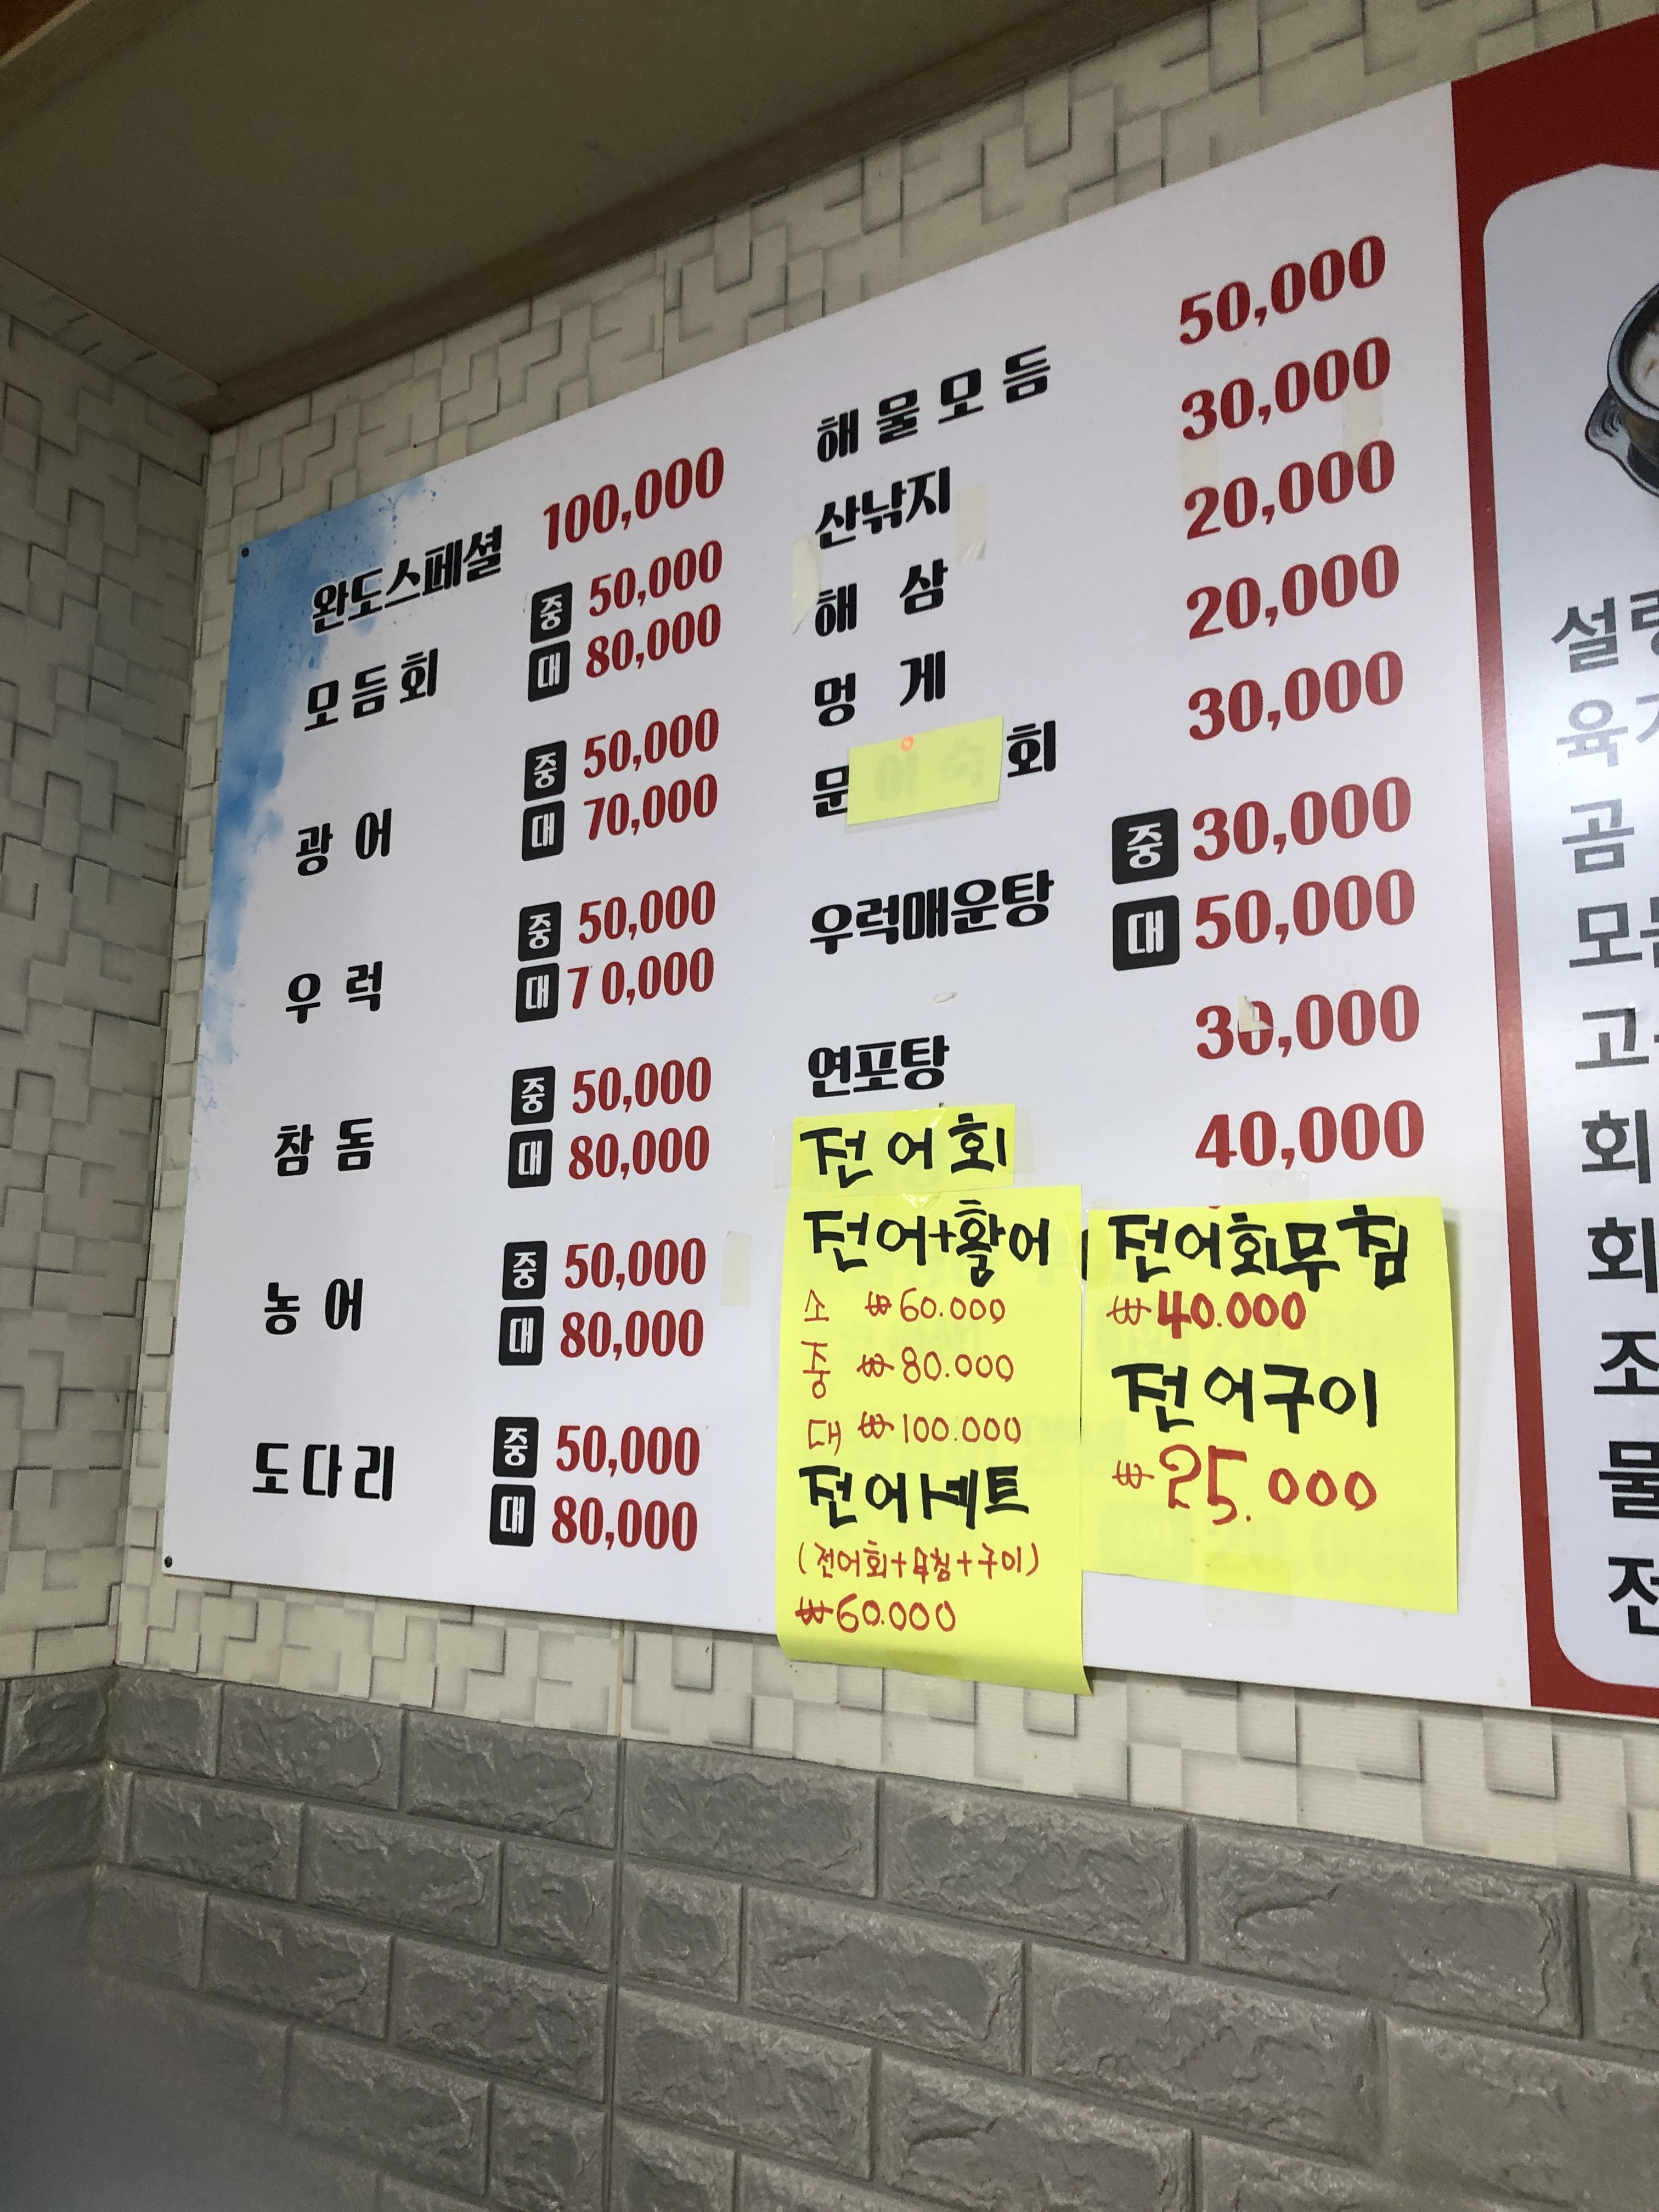 완도스페셜 100,000
모듬회 중 50,000
대 80,000
광어 중 50,000
대 70,000
우럭 중 50,000
대 70,000
참돔 중 50,000
대 80,000
농어 중 50,000
대 80,000
도다리 중 50,000
대 80,000
해물모듬 50,000
산낚지 30,000
해삼 20,000
멍게 20,000
문 회 30,000
우럭매운탕 중 30,000
대 50,000
연포탕 30,000
전어회 40,000
전어+활어
소 ₩60.000
중 ₩80.000
대 ₩100.000
전어세트
(전어회+무침+구이)
₩60.000
전어회무침
₩40.000
전어구이
₩25.000
설렁
육
곰
모듬
고
회
회
조
물
전